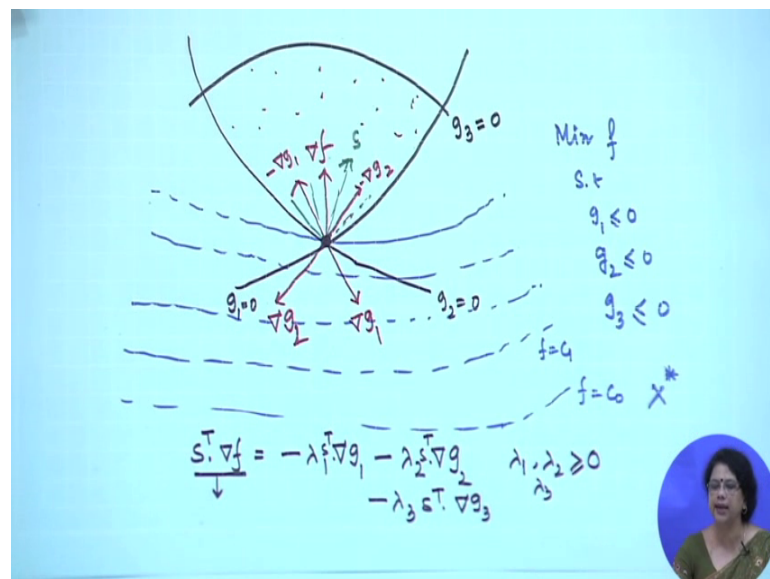 g₃ = 0
-∇g₁ ∇f S -∇g₂
g₁=0 ∇g₂ ∇g₁ g₂=0
Min f
s.t
g₁ ≤ 0
g₂ ≤ 0
g₃ ≤ 0
f=C₁
f=C₀ X*
Sᵀ.∇f = -λ₁Sᵀ.∇g₁ - λ₂Sᵀ.∇g₂ λ₁, λ₂ ≥ 0
-λ₃ Sᵀ.∇g₃ λ₃